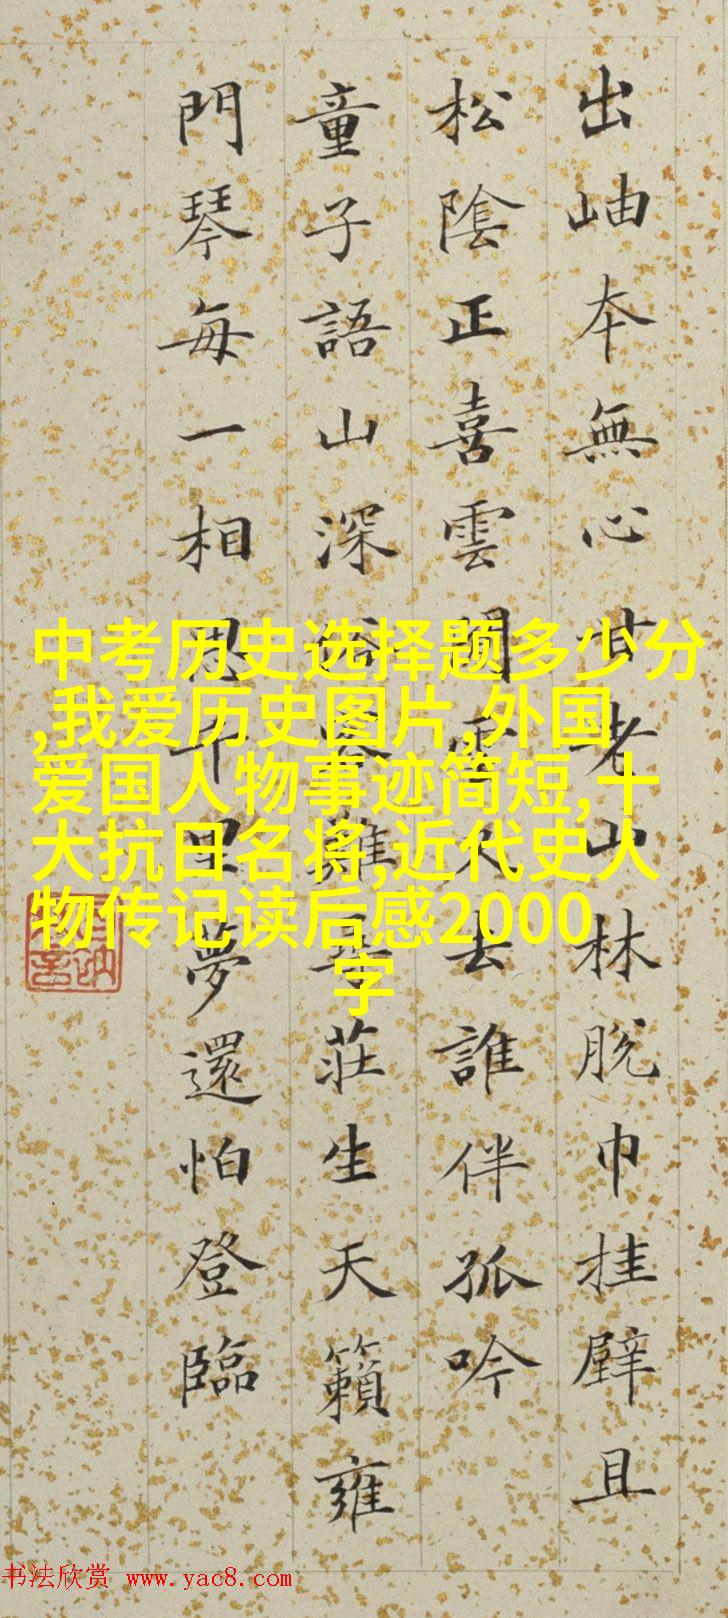 出岫本無心甘老山林脫巾挂壁且
松陰正喜雲閒雲又去誰伴孤吟
童子語山深俗客難尋莊生天籟雍
門琴每一相思千里夢還怕登臨
中考历史选择题多少分
,我爱历史图片,外国
爱国人物事迹简短,十
大抗日名将,近代史人
物传记读后感2000
字
书法欣赏 www.yac8.com